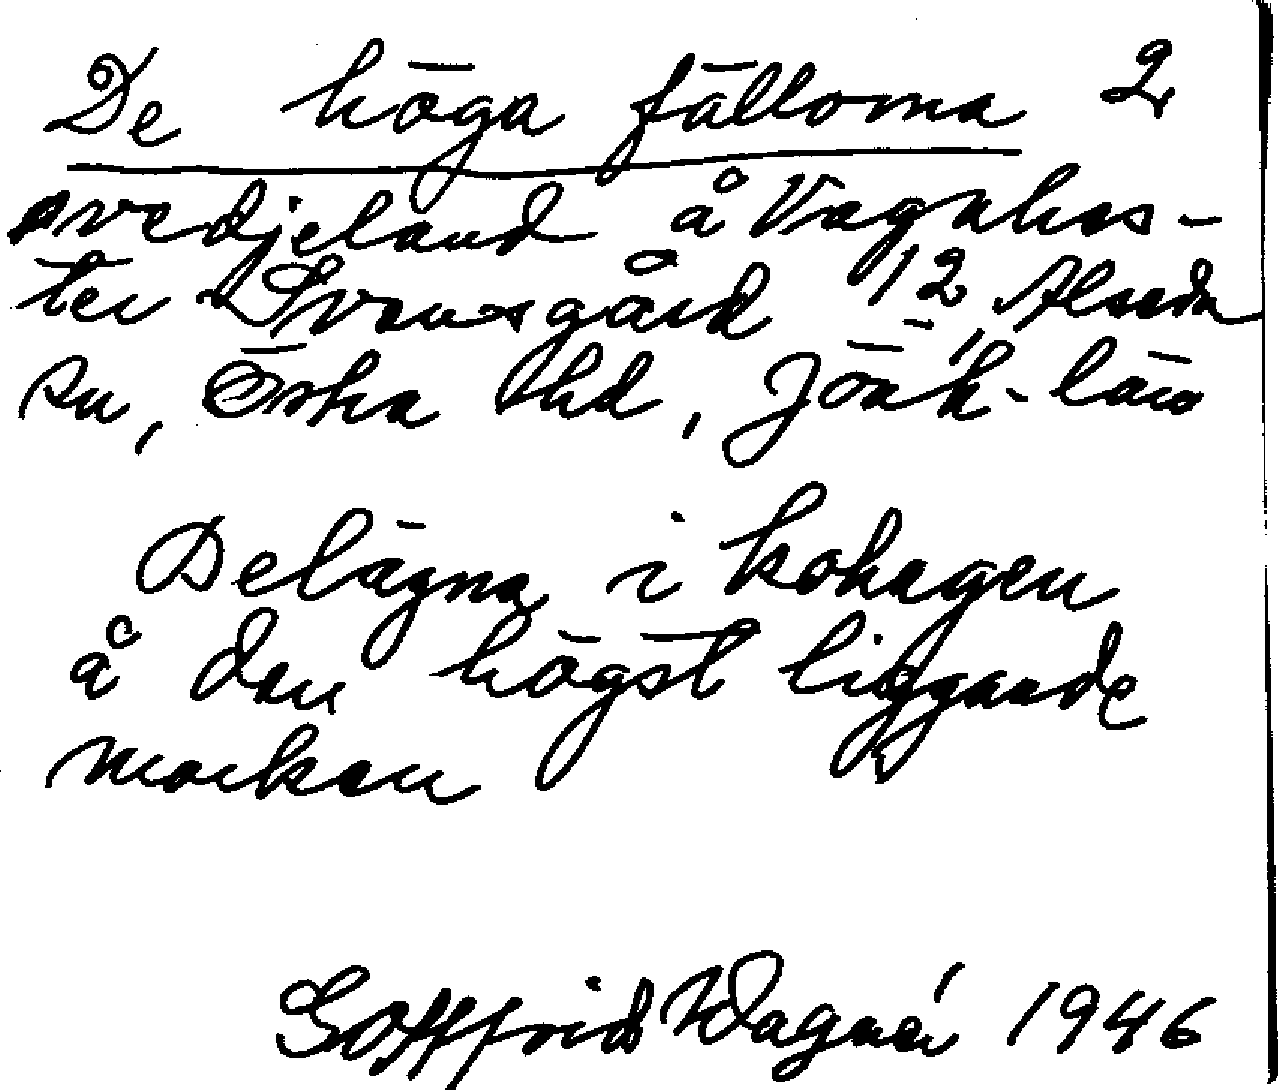 De höga fällorna 2
svedjeland å Vagnhes-
ter Svensgård 12, Alseda
sn, Östra hd, Jönk-län
Delägna i kohagen
å den högst liggande
marken
Gottfrid Wagnér 1946